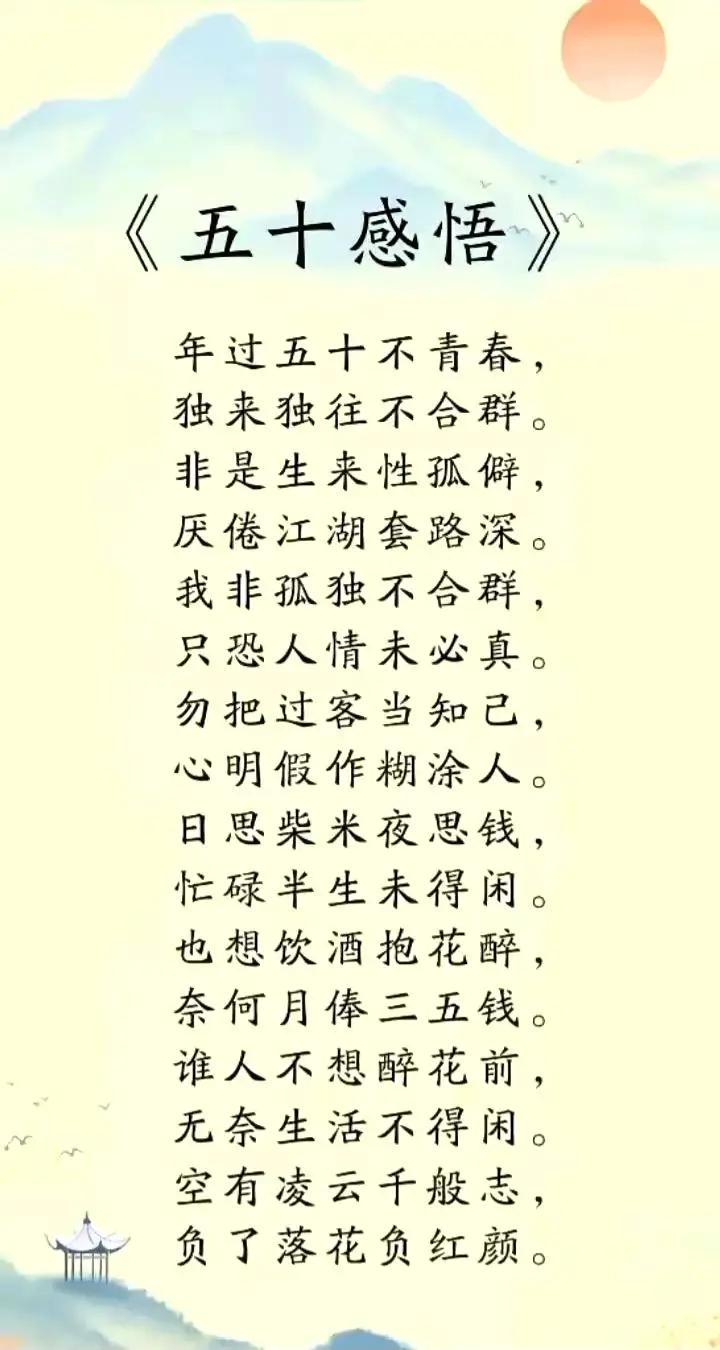 《五十感悟》
年过五十不青春，
独来独往不合群。
非是生来性孤僻，
厌倦江湖套路深。
我非孤独不合群，
只恐人情未必真。
勿把过客当知己，
心明假作糊涂人。
日思柴米夜思钱，
忙碌半生未得闲。
也想饮酒抱花醉，
奈何月俸三五钱。
谁人不想醉花前，
无奈生活不得闲。
空有凌云千般志，
负了落花负红颜。